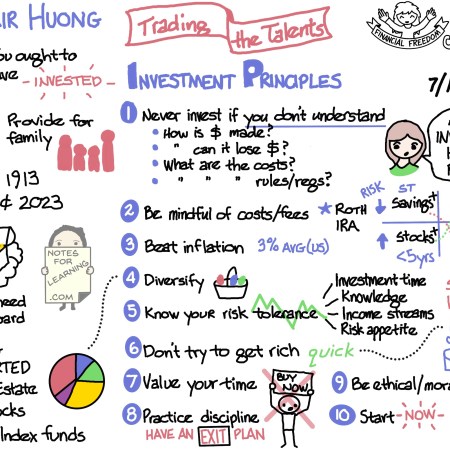 IR HUONG
Trading the Talents
FINANCIAL FREEDOM
ou ought to
ve INVESTED
INVESTMENT PRINCIPLES
7/1
Provide for
family
1 Never invest if you don't understand
• How is $ made?
• " can it lose $?
• What are the costs?
• " " " rules/regs?
1913
¢ 2023
2 Be mindful of costs/fees ★ ROTH
IRA
RISK ST
savings+
stocks+
<5yrs
3 Beat inflation 3% AVG (US)
NOTES
FOR
LEARNING
.COM
4 Diversify
need
oard
5 Know your risk tolerance
Investment time
Knowledge
Income streams
Risk appetite
6 Don't try to get rich quick
RTED
Estate
ocks
Index funds
7 Value your time
BUY
NOW
8 Practice discipline
HAVE AN EXIT PLAN
9 Be ethical/mora
10 Start NOW